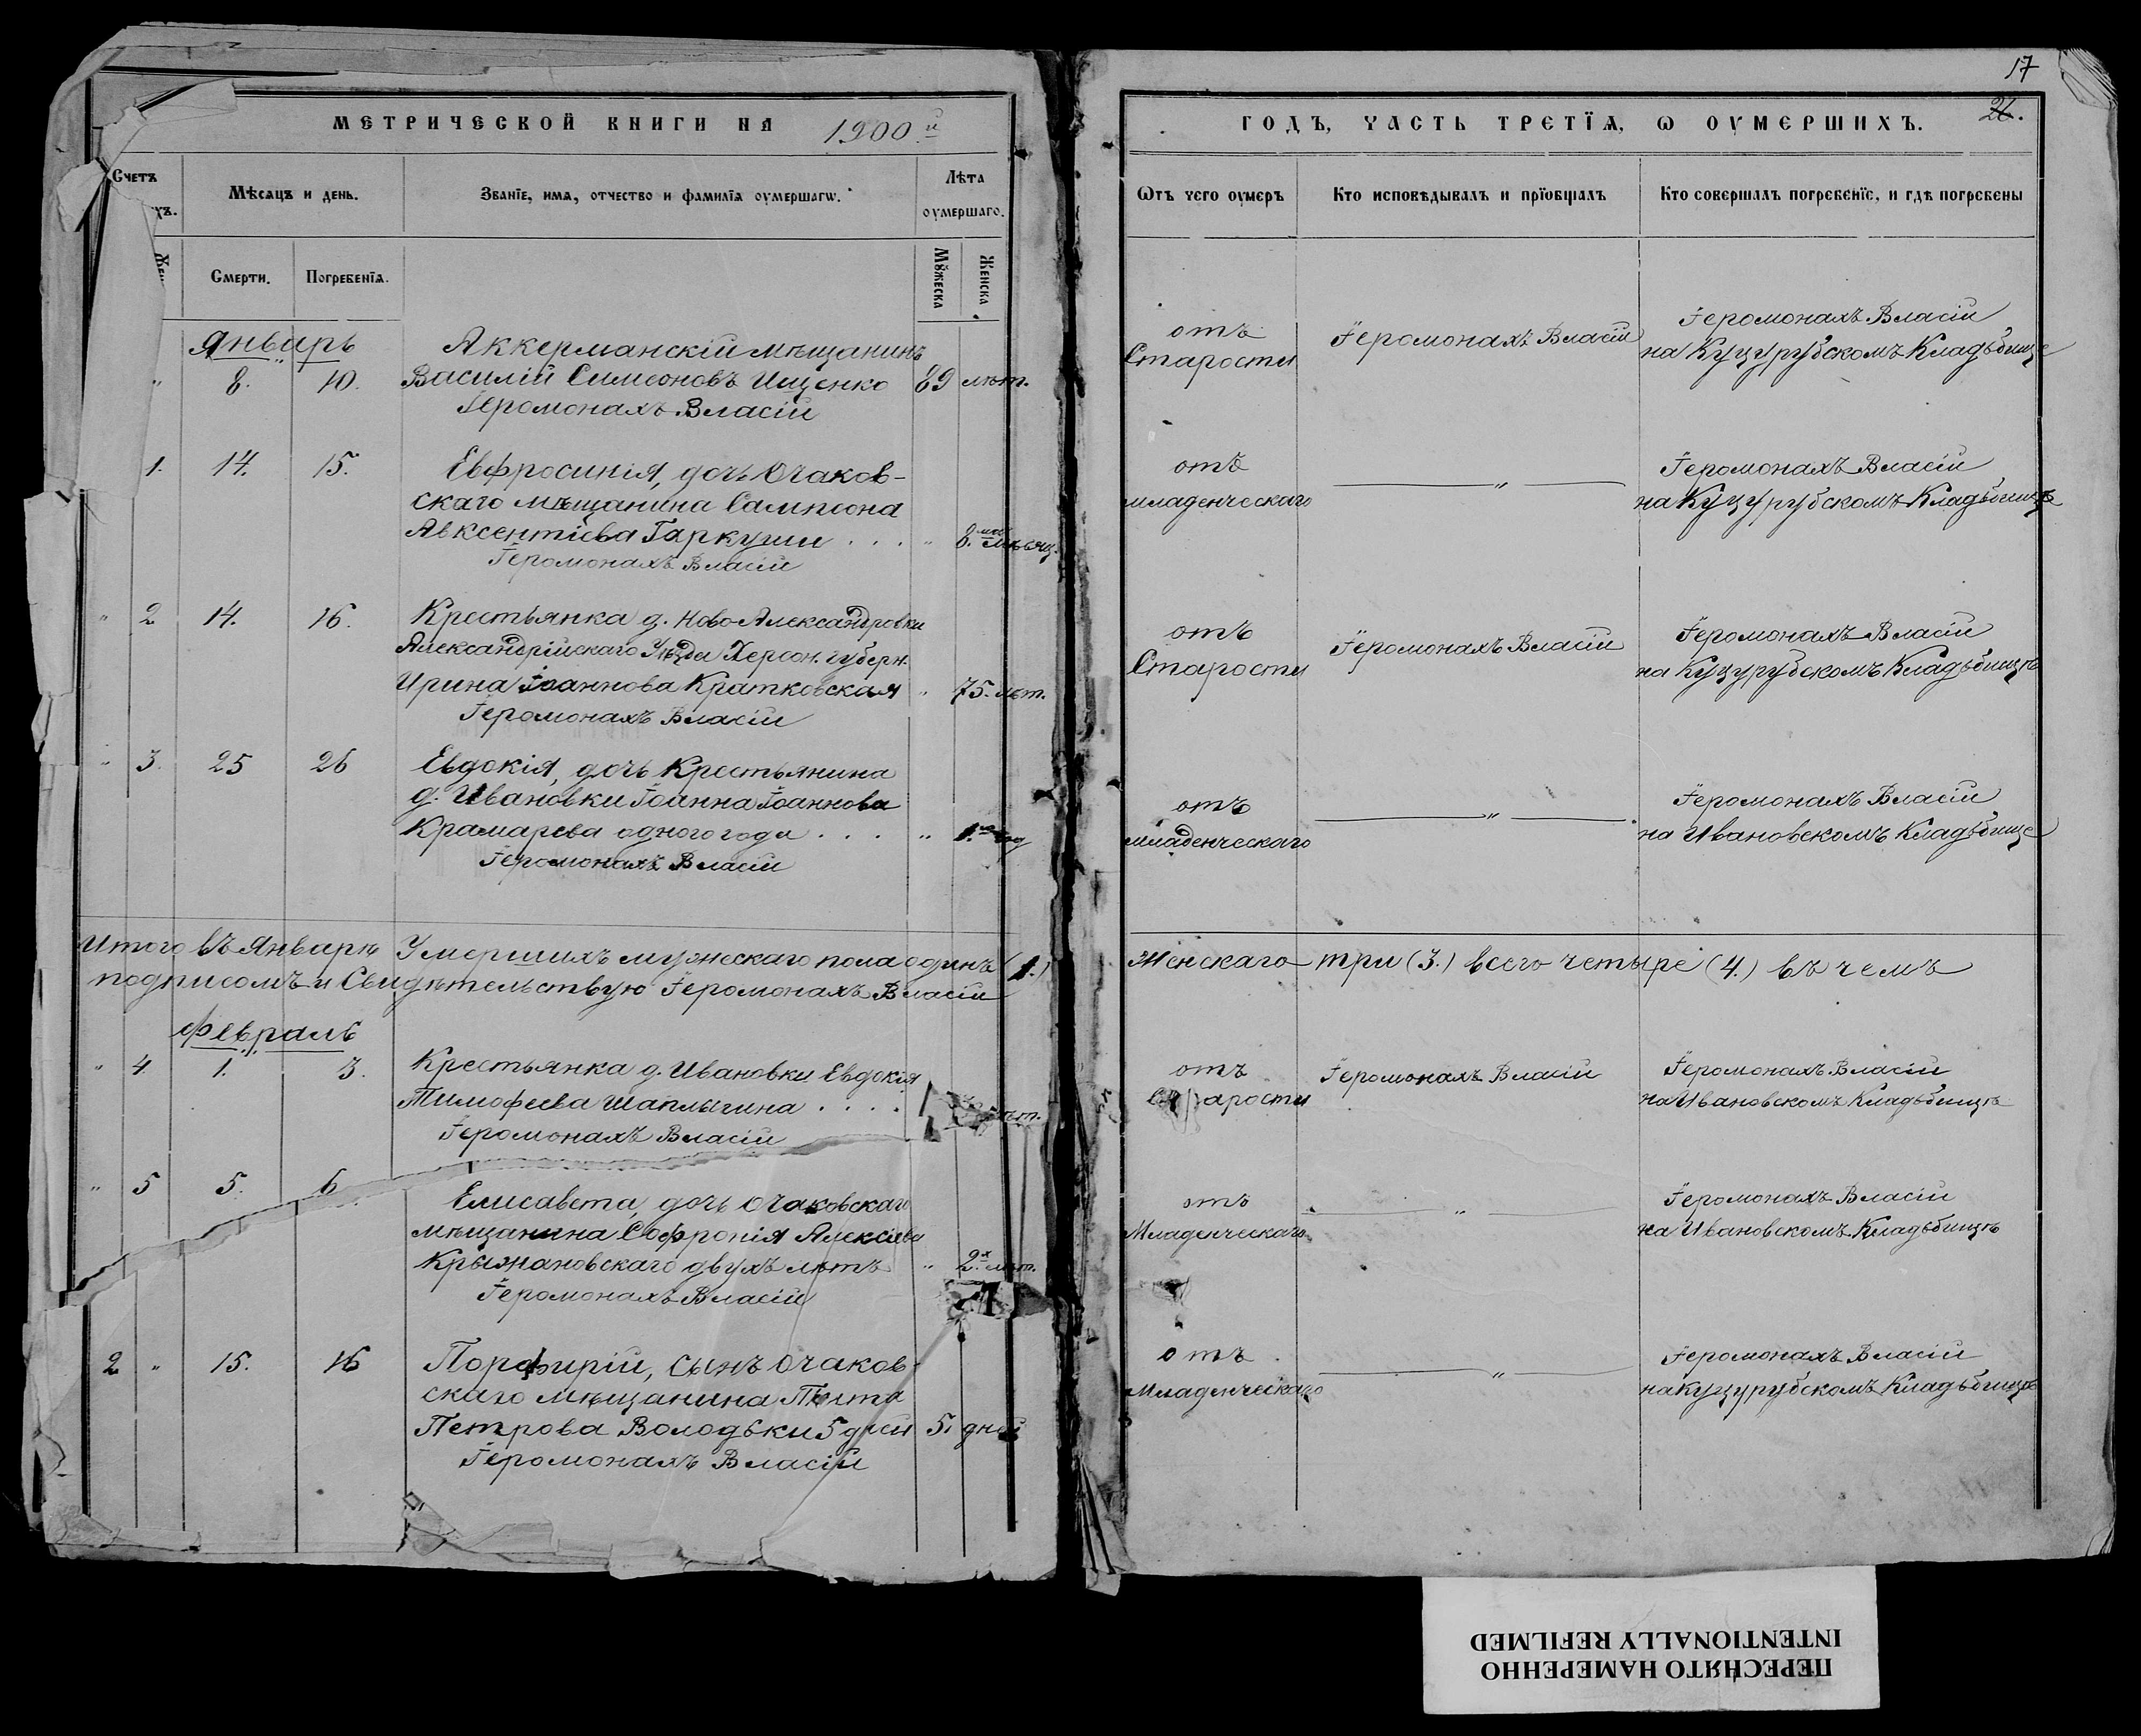 МЕТРИЧЕСКОЙ КНИГИ НА 1900й
Счетъ
Мѣсяцъ и день.
Званїе, имя, отчество и фамилїя оумершагѡ.
Лѣта
оумершаго.
Смерти.
Погребенїя.
Мꙋжеска
Женска
Январь
Аккерманскій мѣщанинъ
" 8. 10. Василій Симеоновъ Ищенко 89 лѣт.
Іеромонахъ Власій
1. 14. 15. Евфросинія, дочь Очаков-
скаго мѣщанина Сампсона
Авксентіева Гаркуши . . . " 8. мѣсяц.
Іеромонахъ Власій
" 2 14. 16. Крестьянка д. Ново-Александровки
Александрійскаго Уѣзда Херсон. губерн.
Ирина Іоаннова Кратковская " 75. лѣт.
Іеромонахъ Власій
" 3. 25 26 Евдокія, дочь Крестьянина
д. Ивановки Іоанна Іоаннова
Крамарева одного года . . . " 1. год
Іеромонахъ Власій
Итого въ Январѣ Умершихъ мужескаго пола одинъ (1.)
подписомъ и Свидѣтельствую Іеромонахъ Власій
Февраль
" 4 1. 3. Крестьянка д. Ивановки Евдокія
Тимофеева Шаплыгина . . . . лѣт.
Іеромонахъ Власій
" 5 5. 6 Елисавета, дочь Очаковскаго
мѣщанина Софронія Алексіева
Крыжановскаго двухъ лѣтъ " 2х лѣт.
Іеромонахъ Власій
2 " 15. 16 Порфирій, сынъ Очаков-
скаго мѣщанина
Петрова Володьки 5 дней 5. дней
Іеромонахъ Власій
17
26.
ГОДЪ, ЧАСТЬ ТРЕТЇЯ, Ѡ ОУМЕРШИХЪ.
Ѿтъ чего оумеръ
Кто исповѣдывалъ и прїобщалъ
Кто совершалъ погребенїе, и гдѣ погребены
отъ Старости
Іеромонахъ Власій
Іеромонахъ Власій
на Куцурубскомъ Кладьбище
отъ младенческаго
"
Іеромонахъ Власій
на Куцурубскомъ Кладьбищѣ
отъ Старости
Іеромонахъ Власій
Іеромонахъ Власій
на Куцурубскомъ Кладьбищѣ
отъ младенческаго
"
Іеромонахъ Власій
на Ивановскомъ Кладьбище
Женскаго три (3.) всего четыре (4.) въ чемъ
отъ Старости
Іеромонахъ Власій
Іеромонахъ Власій
на Ивановскомъ Кладьбищѣ
отъ Младенческаго
"
Іеромонахъ Власій
на Ивановскомъ Кладьбищѣ
отъ Младенческаго
"
Іеромонахъ Власій
на Куцурубскомъ Кладьбищѣ
ПЕРЕСНЯТО НАМЕРЕННО
INTENTIONALLY REFILMED